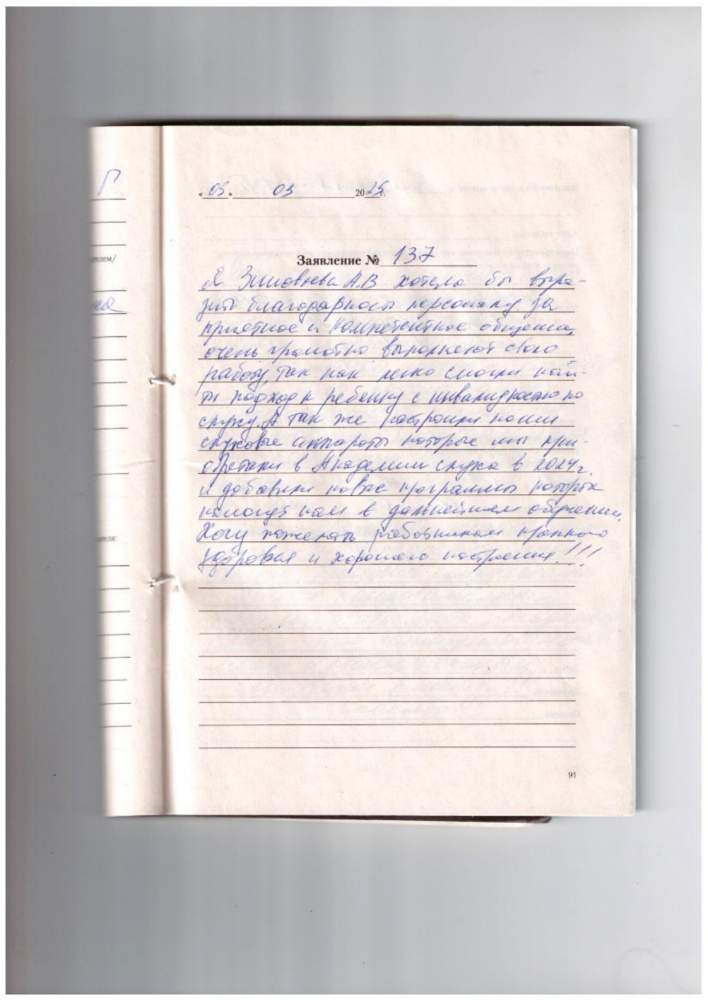 Г
"05." 03 2025.
Заявление № 137
Я Зиновьева А.В хотела бы выра-
зить благодарность персоналу за
приятное и компетентное общение,
очень грамотно выполняют свою
работу, так как легко смогли най-
ти подход к ребенку с инвалидностью по
слуху. А так же настроили наши
слуховые аппараты которые мы при-
обретали в Академии слуха в 2024г.
и добавили новые программы которые
помогут нам в дальнейшем обучении.
Хочу пожелать работникам крепкого
здоровья и хорошего настроения!!!
91